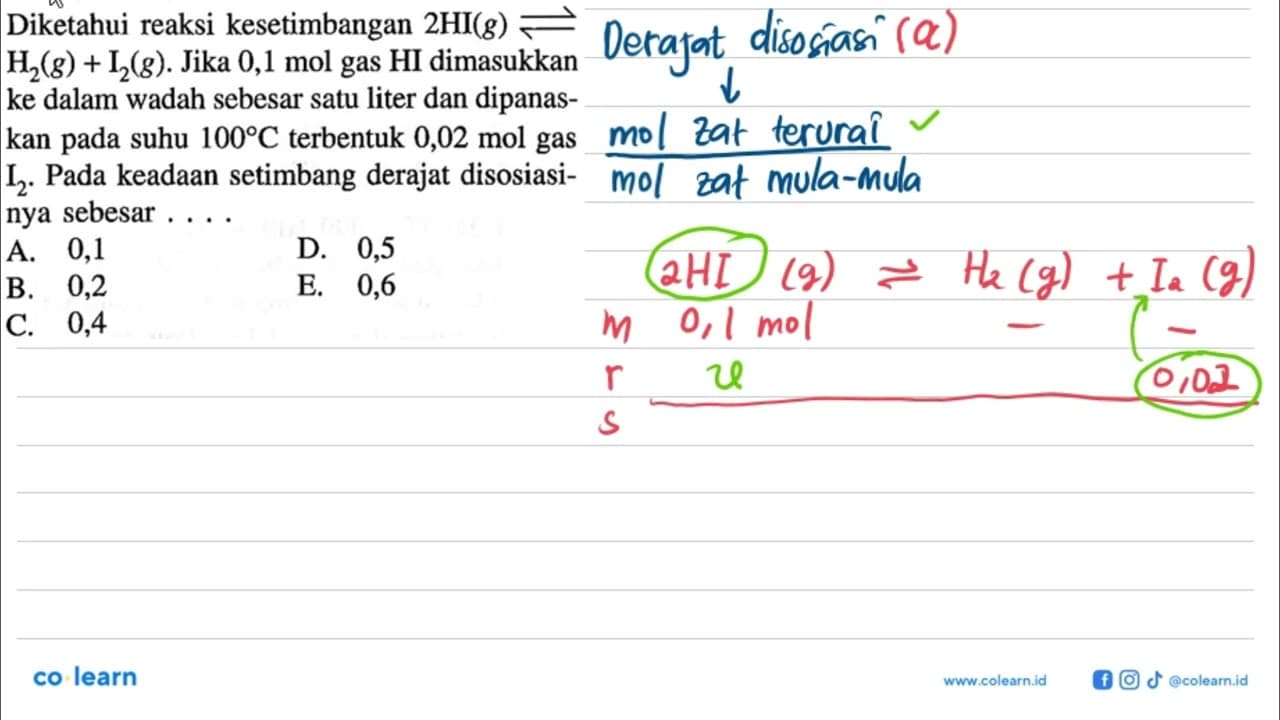 Diketahui reaksi kesetimbangan 2HI(g) ⇌
H₂(g) + I₂(g). Jika 0,1 mol gas HI dimasukkan
ke dalam wadah sebesar satu liter dan dipanas-
kan pada suhu 100°C terbentuk 0,02 mol gas
I₂. Pada keadaan setimbang derajat disosiasi-
nya sebesar . . . .
A. 0,1 D. 0,5
B. 0,2 E. 0,6
C. 0,4
Derajat disosiasi (α)
↓
mol zat terurai ✓
mol zat mula-mula
2HI (g) ⇌ H₂ (g) + I₂ (g)
m 0,1 mol - -
r 0,02
s
co learn
www.colearn.id @colearn.id